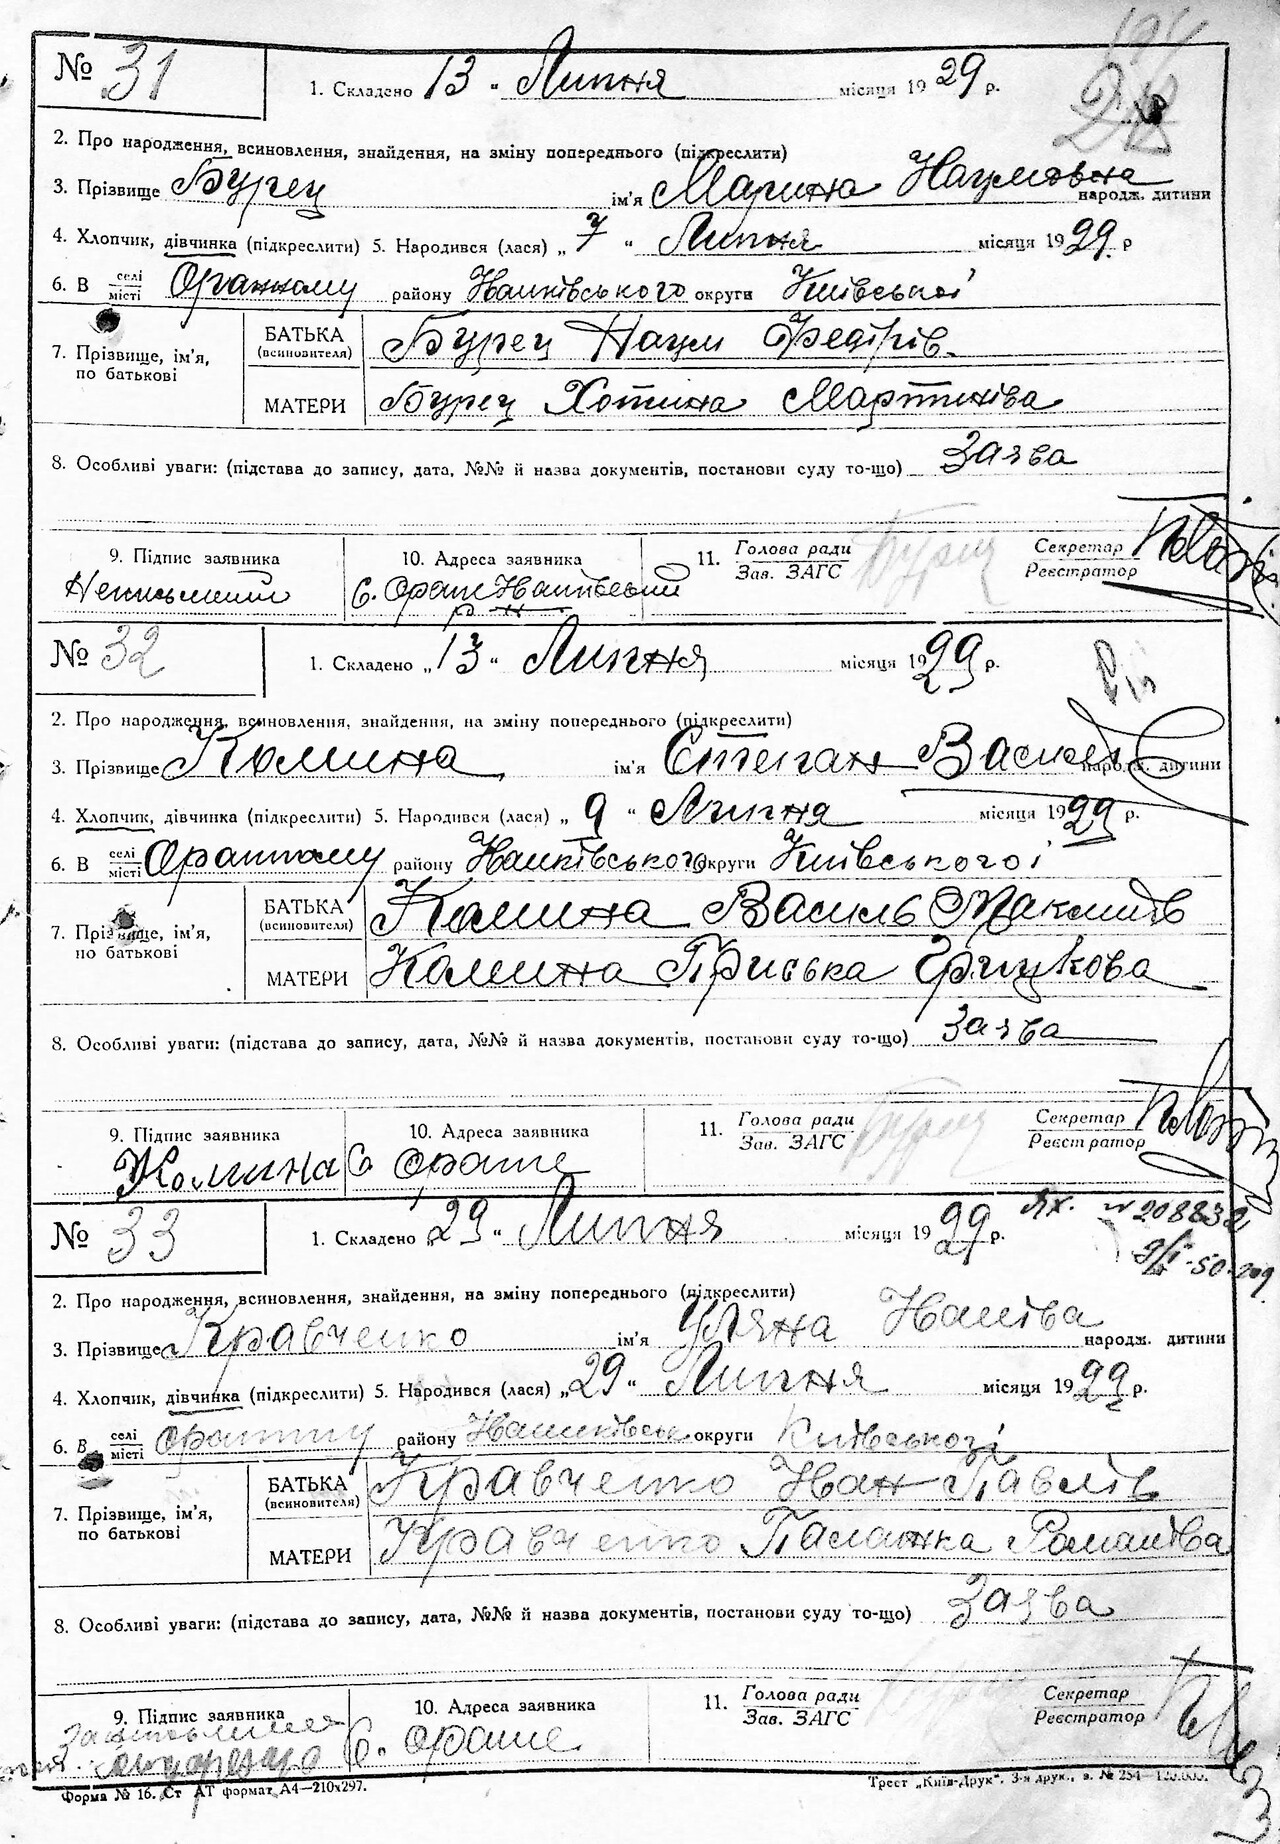 № 31
1. Складено 13 " Липня місяця 1929 р.
2. Про народження, всиновлення, знайдення, на зміну попереднього (підкреслити)
3. Прізвище Бурец ім'я Марина Наумовна народж. дитини
4. Хлопчик, дівчинка (підкреслити) 5. Народився (лася) „ 7 " Липня місяця 1929 р
6. В селі місті Оранному району Хапківського округи Київської
7. Прізвище, ім'я, по батькові
БАТЬКА (всиновителя) Бурец Наум Федірів
МАТЕРИ Бурец Хотина Мартинівa
8. Особливі уваги: (підстава до запису, дата, №№ й назва документів, постанови суду то-що) Заява
9. Підпис заявника 10. Адреса заявника 11. Голова ради Зав. ЗАГС Секретар Реєстратор
Неписьмений с. Оране
№ 32
1. Складено „ 13 " Липня місяця 1929 р.
2. Про народження, всиновлення, знайдення, на зміну попереднього (підкреслити)
3. Прізвище Колина ім'я Степан Василів народж. дитини
4. Хлопчик, дівчинка (підкреслити) 5. Народився (лася) „ 9 " Липня місяця 1929 р.
6. В селі місті Оранному району округи
7. Прізвище, ім'я, по батькові
БАТЬКА (всиновителя) Колина Василь Максимів
МАТЕРИ Колина Приська Грицкова
8. Особливі уваги: (підстава до запису, дата, №№ й назва документів, постанови суду то-що) Заява
9. Підпис заявника 10. Адреса заявника 11. Голова ради Зав. ЗАГС Секретар Реєстратор
Колина С Оране
№ 33
1. Складено „ 29 " Липня місяця 1929 р.
2. Про народження, всиновлення, знайдення, на зміну попереднього (підкреслити)
3. Прізвище Кравченко ім'я Уляна Іванівa народж. дитини
4. Хлопчик, дівчинка (підкреслити) 5. Народився (лася) „ 29 " Липня місяця 1929 р.
6. В селі місті району округи Київської
7. Прізвище, ім'я, по батькові
БАТЬКА (всиновителя) Кравченко Іван Павлів
МАТЕРИ Кравченко Палажка Романівa
8. Особливі уваги: (підстава до запису, дата, №№ й назва документів, постанови суду то-що) Заява
9. Підпис заявника 10. Адреса заявника 11. Голова ради Зав. ЗАГС Секретар Реєстратор
с. Оране
Форма № 16. Ст АТ формат А4—210х297. Трест „Київ-Друк". 3-я друк., з. № 254